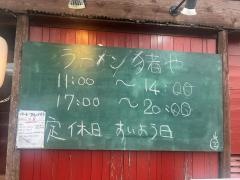 ラーメン 猪や
11:00 ～ 14:00
17:00 ～ 20:00
定休日 すいよう日